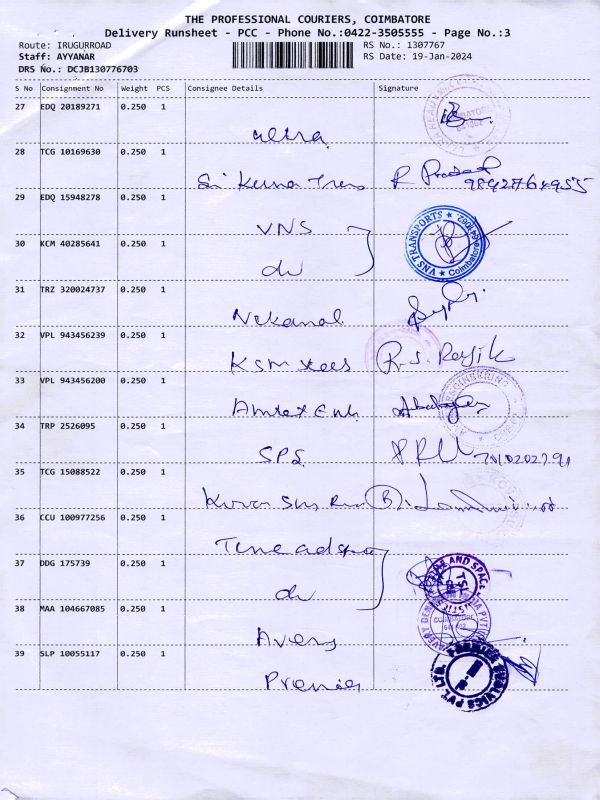 THE PROFESSIONAL COURIERS, COIMBATORE
Delivery Runsheet - PCC - Phone No.:0422-3505555 - Page No.:3
Route: IRUGURROAD RS No.: 1307767
Staff: AYYANAR RS Date: 19-Jan-2024
DRS No.: DCJB130776703
S No Consignment No Weight PCS Consignee Details Signature
27 EDQ 20189271 0.250 1
ultra
28 TCG 10169630 0.250 1
Sri Kumar Trans R Prasad 9842764955
29 EDQ 15948278 0.250 1
VNS
VNS TRANSPORTS ★ 641062. ★ Coimbatore
30 KCM 40285641 0.250 1
do
31 TRZ 320024737 0.250 1
32 VPL 943456239 0.250 1
KSM R.S. Rajik
33 VPL 943456200 0.250 1
ENGINEERING
34 TRP 2526095 0.250 1
SPS
35 TCG 15088522 0.250 1
36 CCU 100977256 0.250 1
Time and space
37 DDG 175739 0.250 1
TIME AND SPACE
do
38 MAA 104667085 0.250 1
COIMBATORE
Avery
39 SLP 10055117 0.250 1
Premier
PVT LTD.